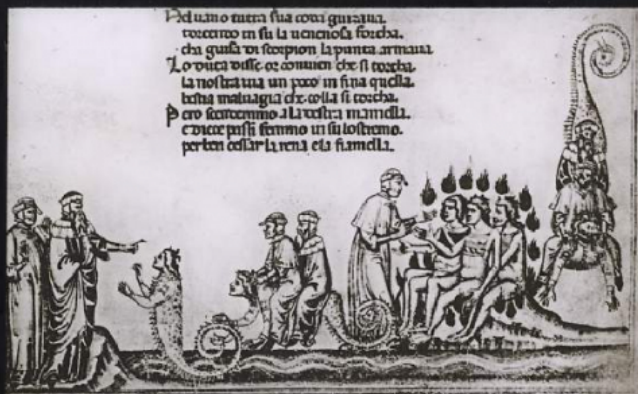 Nel uano tutta sua coda guizaua
torcendo in su la uenenosa forcha.
cha guisa di scorpion la punta armaua.
Lo duca disse. or conuien che si torcha.
la nostra uia un poco infina quella
bestia maluagia che colla si corcha.
Pero scendemmo a la destra mamella.
e diece passi femmo in su lostremo.
per ben cessar la rena e la fiamella.